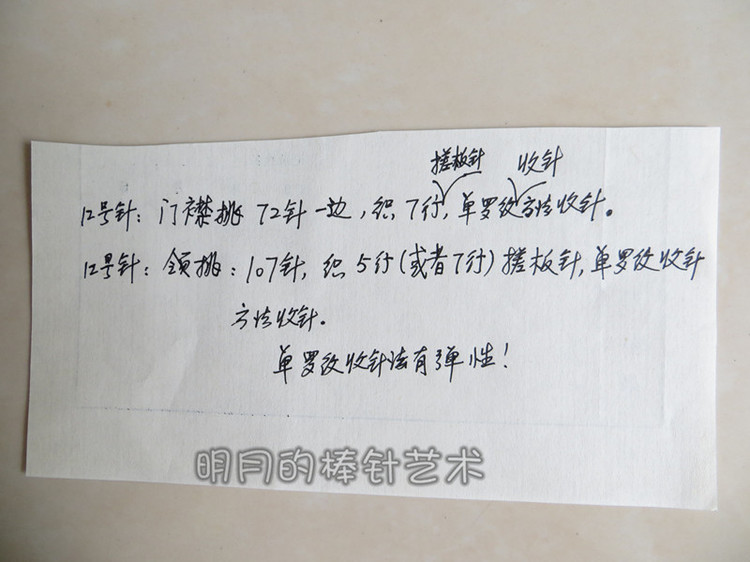 搓板针 收针
12号针：门襟挑72针一边，织7行，单罗纹方法收针。
12号针：领挑：107针，织5行(或者7行)搓板针，单罗纹收针
方法收针。
单罗纹收针法有弹性！
明月的棒针艺术